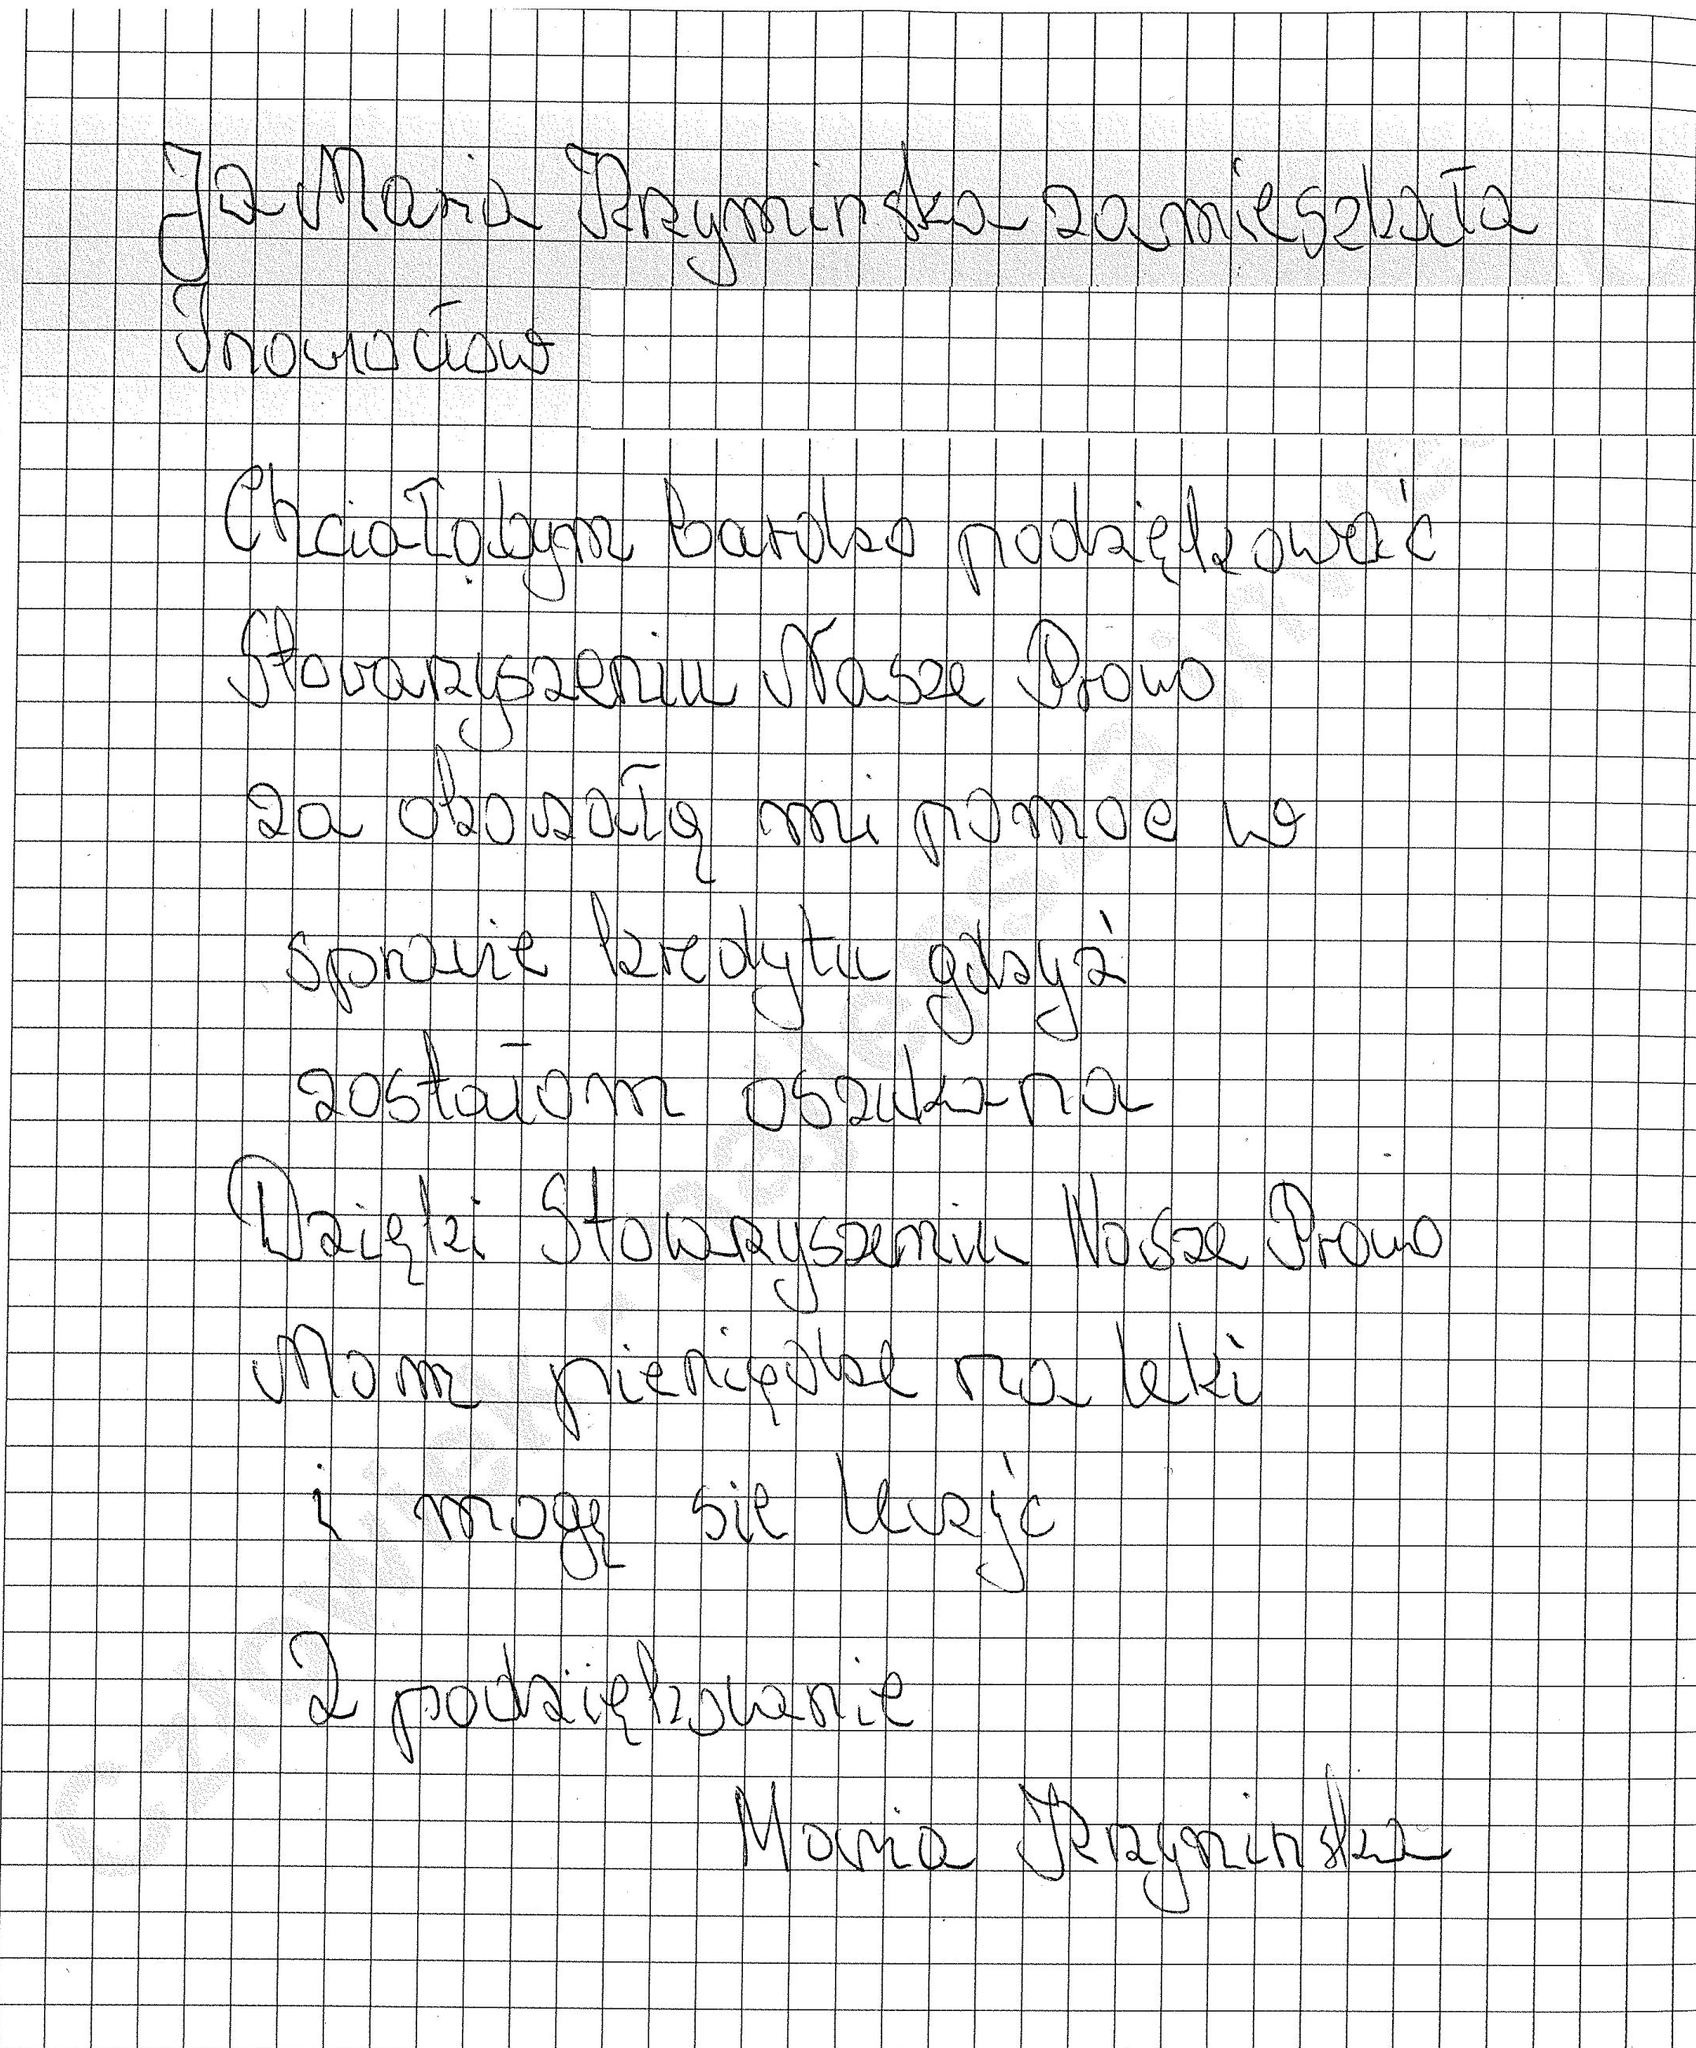 Ja Maria Krzyminska zamieszkała
Inowrocław
Chciałobym bardzo podziękować
Stowarzyszeniu Nasze Prawo
za okozałą mi pomoc w
sprawie kredytu gdzyż
zostałam oszukana
Dzięki Stowarzyszeniu Nasze Prawo
Mam pieniędze na leki
i mogę sie leczyć
Z podziiękowanie
Maria Krzyminska